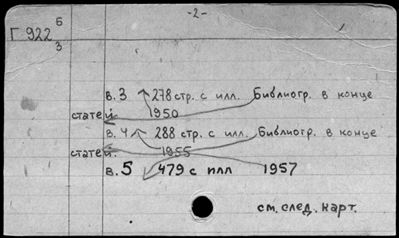 -2-
Г 922 6
3
в. 3 278 стр. с илл. Библиогр. в конце
статей. 1950
в. 4 288 стр. с илл. Библиогр. в конце
статей. 1955
в. 5 479 с илл 1957
см. след. карт.